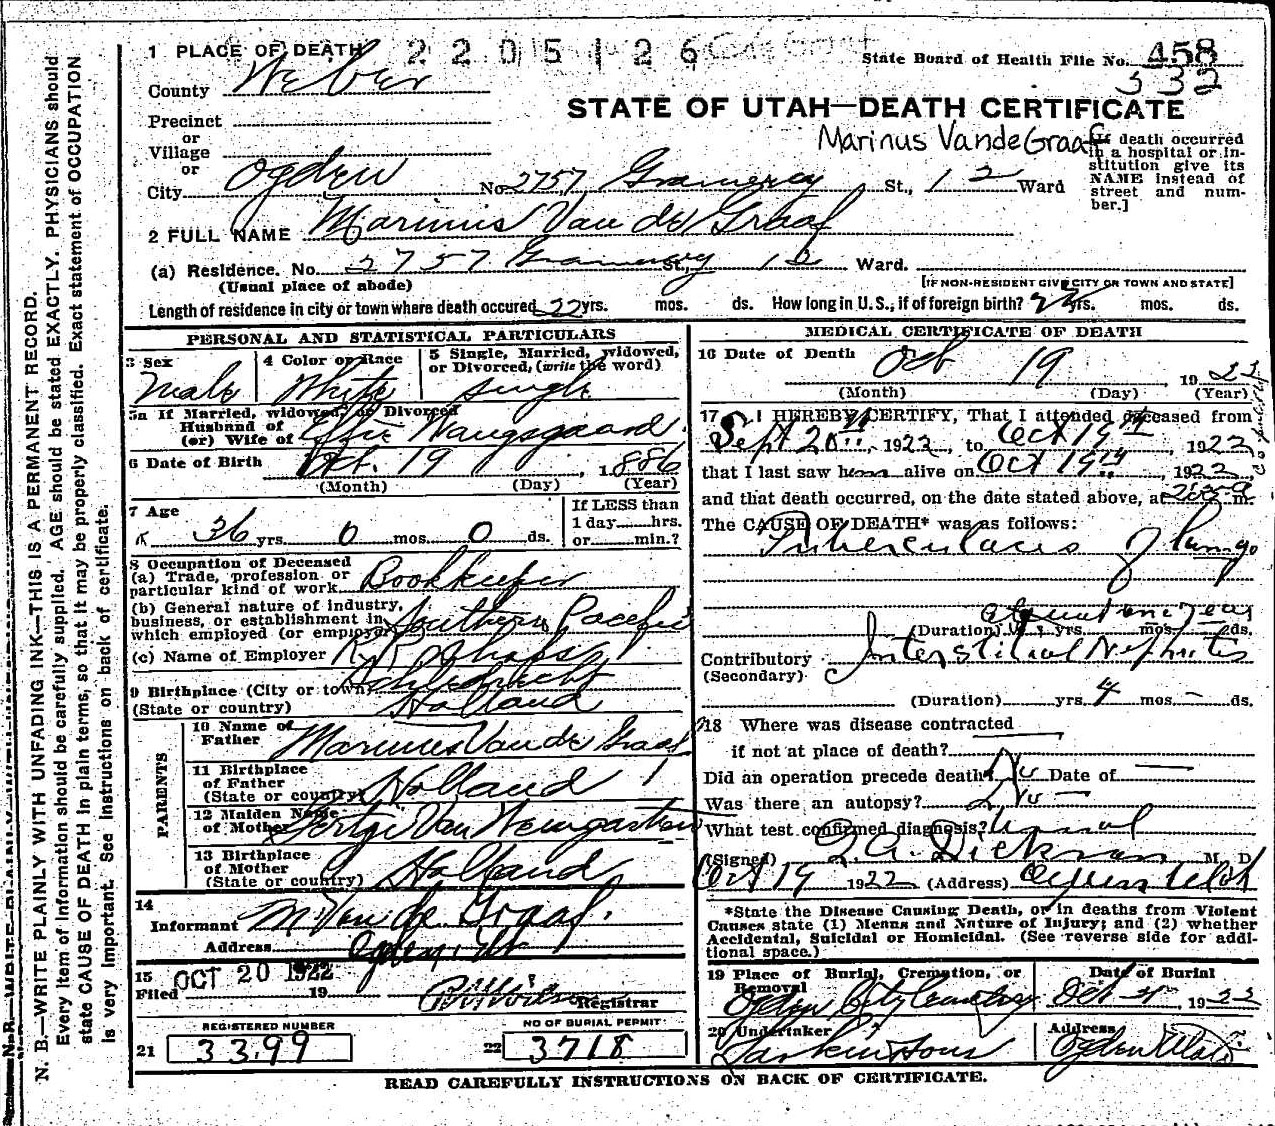 1 PLACE OF DEATH 2 2 0 5 1 2 6
State Board of Health File No. 458
532
County Weber
STATE OF UTAH—DEATH CERTIFICATE
Precinct
or
Village
or
Marinus VandeGraaf
[If death occurred in a hospital or institution give its NAME instead of street and number.]
City Ogden No. 2757 Gramercy St., 12 Ward
2 FULL NAME Marinus Van de Graaf
(a) Residence. No. 2757 Gramercy St., 12 Ward.
(Usual place of abode) [IF NON-RESIDENT GIVE CITY OR TOWN AND STATE]
Length of residence in city or town where death occured 22 yrs. mos. ds. How long in U.S., if of foreign birth? 22 yrs. mos. ds.
PERSONAL AND STATISTICAL PARTICULARS
3 Sex
Male
4 Color or Race
White
5 Single, Married, widowed,
or Divorced, (write the word)
single
5a If Married, widowed, or Divorced
Husband of
(or) Wife of Effie Waugsgaard
6 Date of Birth Oct. 19, 1886
(Month) (Day) (Year)
7 Age
36 yrs. 0 mos. 0 ds.
If LESS than
1 day hrs.
or min.?
8 Occupation of Deceased
(a) Trade, profession or
particular kind of work Bookkeeper
(b) General nature of industry,
business, or establishment in
which employed (or employer) Southern Pacific
(c) Name of Employer R. R. Shops
9 Birthplace (City or town)
(State or country) Holland
PARENTS
10 Name of
Father Marinus Van de Graaf
11 Birthplace
of Father
(State or country) Holland
12 Maiden Name
of Mother Van
13 Birthplace
of Mother
(State or country) Holland
14
Informant M. Van de Graaf.
Address Ogden, Ut
15 OCT 20 1922
Filed 19 Registrar
REGISTERED NUMBER
21 3399
NO OF BURIAL PERMIT
22 3718
MEDICAL CERTIFICATE OF DEATH
16 Date of Death
Oct 19, 1922
(Month) (Day) (Year)
17 I HEREBY CERTIFY, That I attended deceased from
Sept 20th, 1922, to Oct 19th, 1922
that I last saw him alive on Oct 19th, 1922
and that death occurred, on the date stated above, at m.
The CAUSE OF DEATH* was as follows:
Tuberculosis of Lungs
about one year
(Duration) yrs. mos. ds.
Contributory Interstitial Nephritis
(Secondary)
(Duration) yrs. 4 mos. – ds.
18 Where was disease contracted
if not at place of death?
Did an operation precede death? No Date of —
Was there an autopsy? No —
What test confirmed diagnosis? Usual
(Signed) Dickson M. D.
Oct 19 1922 (Address) Ogden Utah
*State the Disease Causing Death, or in deaths from Violent
Causes state (1) Means and Nature of Injury; and (2) whether
Accidental, Suicidal or Homicidal. (See reverse side for additional space.)
19 Place of Burial, Cremation, or
Removal
Ogden City Cemetery
Date of Burial
Oct 21, 1922
20 Undertaker
Larkin & Sons
Address
Ogden Utah
READ CAREFULLY INSTRUCTIONS ON BACK OF CERTIFICATE.
N. B.—WRITE PLAINLY WITH UNFADING INK—THIS IS A PERMANENT RECORD.
Every item of information should be carefully supplied. AGE should be stated EXACTLY. PHYSICIANS should
state CAUSE OF DEATH in plain terms, so that it may be properly classified. Exact statement of OCCUPATION
is very important. See instructions on back of certificate.